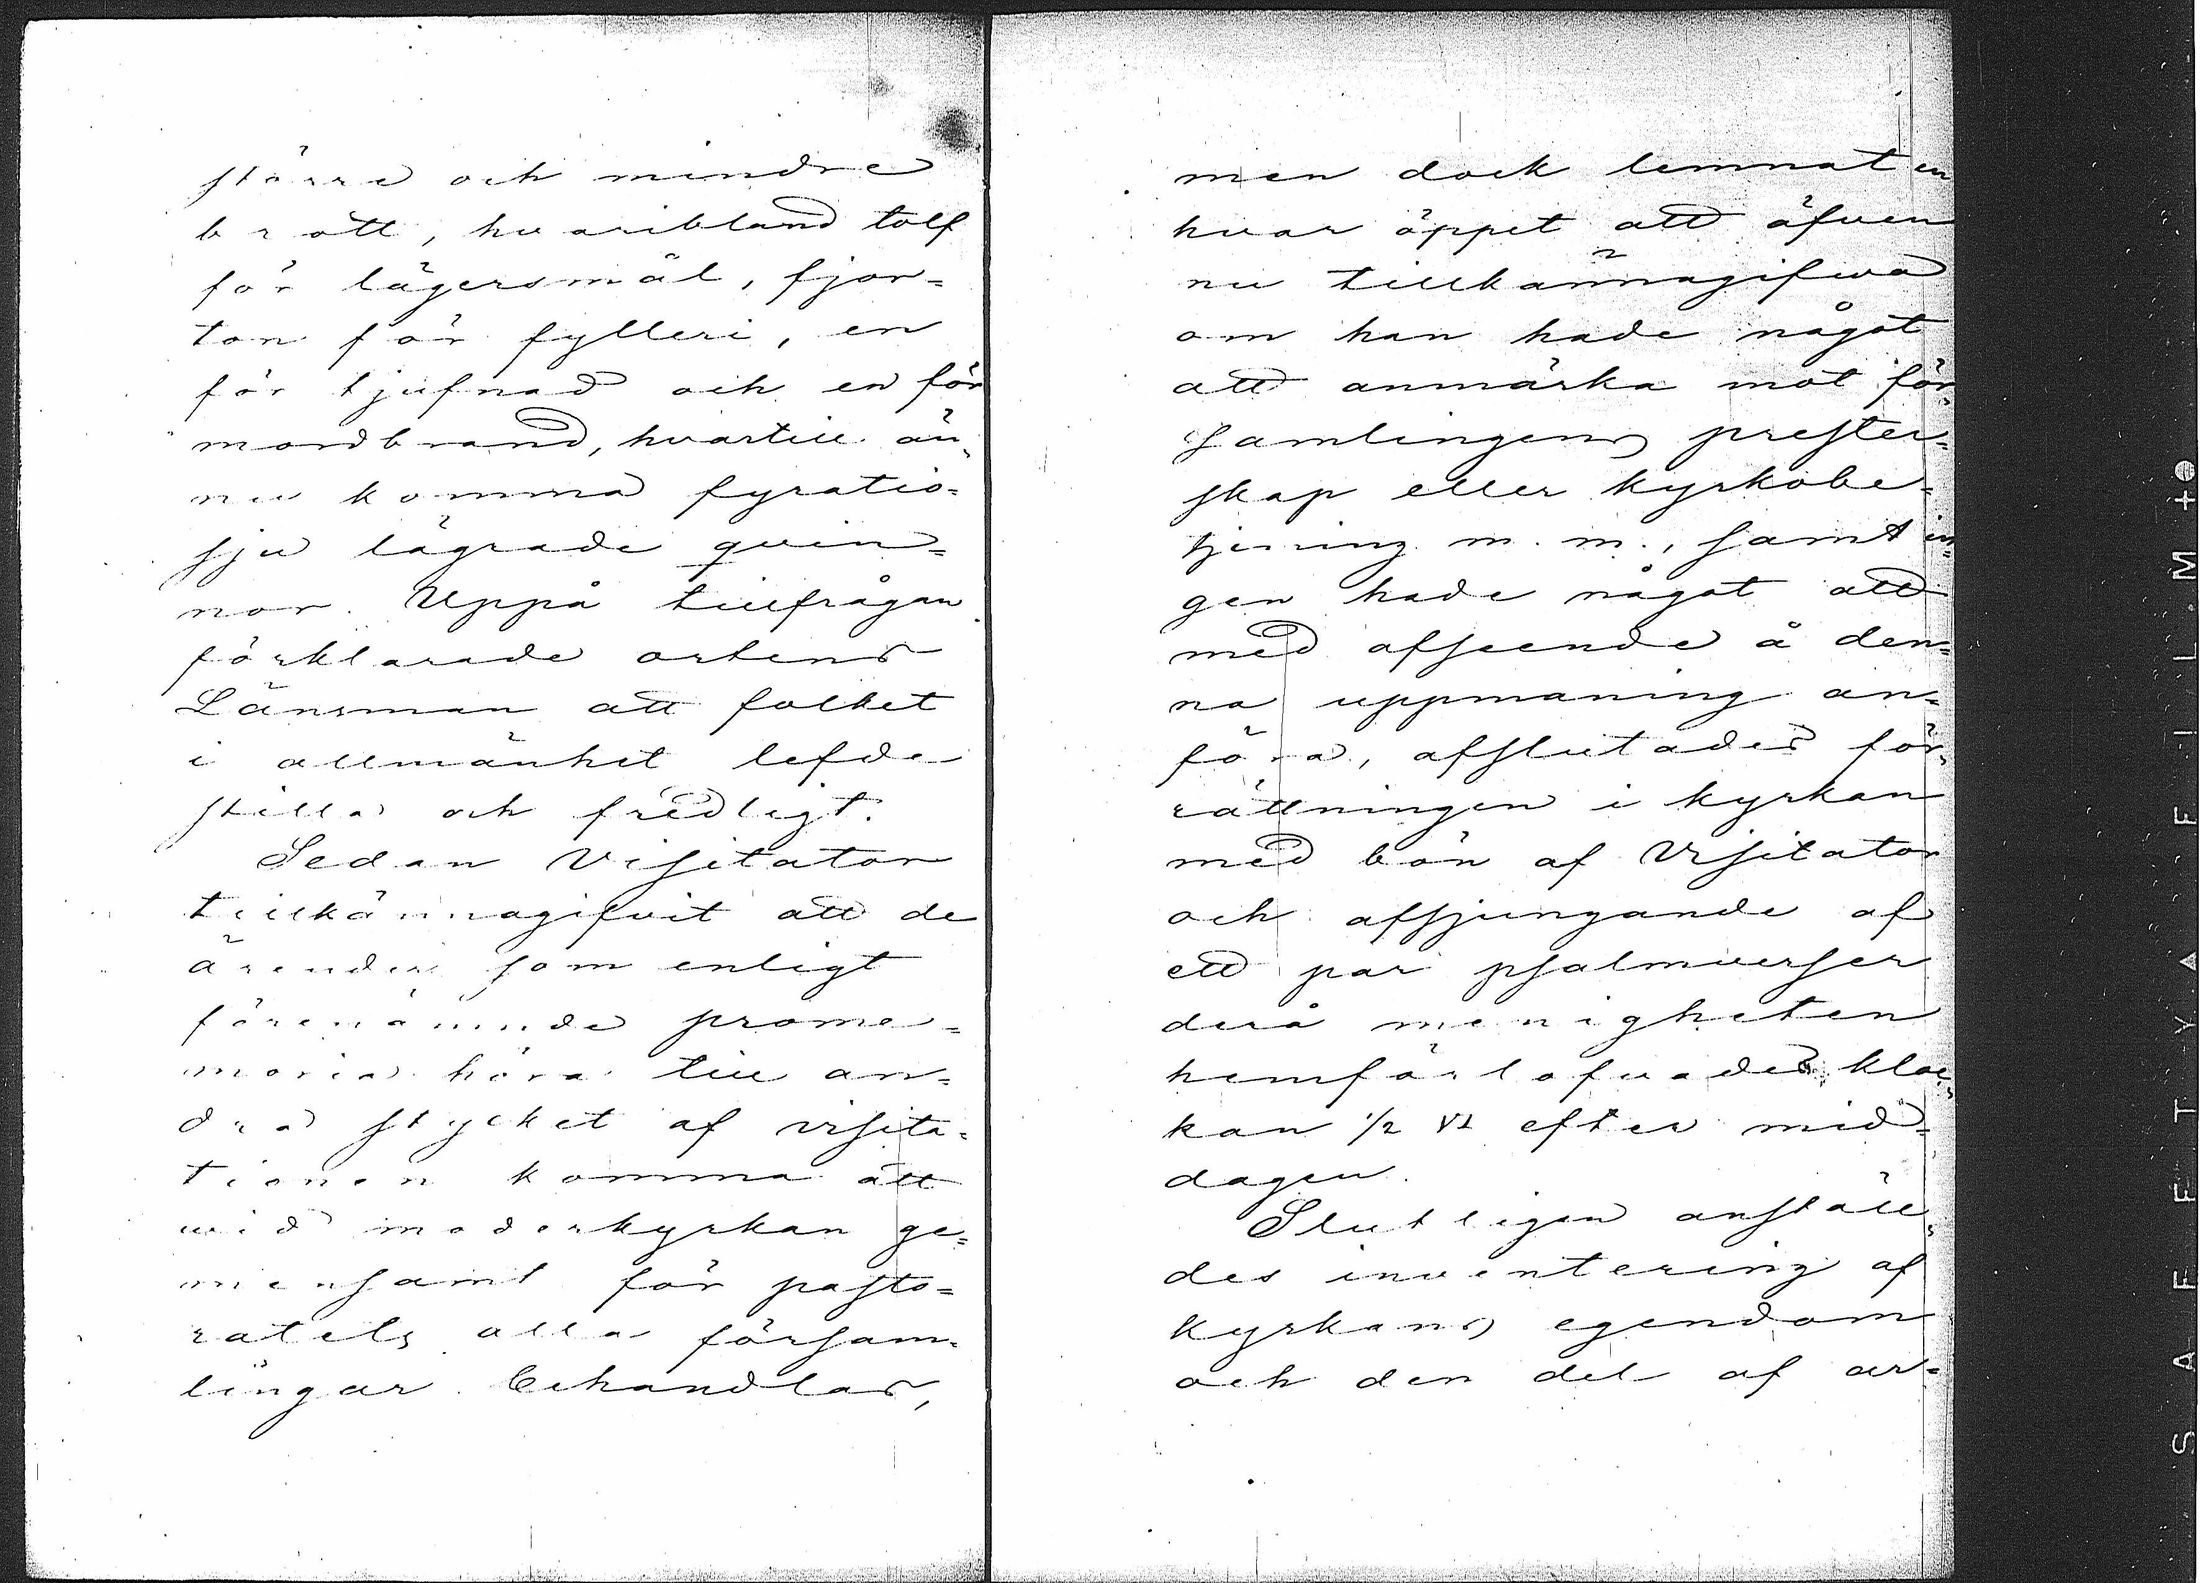 större och mindre
brott, hvaribland tolf
för lägersmål, fjor=
ton för fylleri, en
för tjufnad och en för
mordbrand, hvartill än=
nu komma fyratio=
sju lägrade qvin=
nor. Uppå tillfrågan
förklarade ortens
Länsman att folket
i allmänhet lefde
stilla och fredligt.
Sedan Visitator
tillkännagifvit att de
ärenden som enligt
förenämnde prome=
moria höra till an=
dra stycket af visita=
tionen komma att
wid moderkyrkan ge=
mensamt för pasto=
ratets alla försam=
lingar behandlas,
men dock lemnat en
hvar öppet att äfven
nu tillkännagifwa
om han hade något
att anmärka mot för=
samlingens prester=
skap eller kyrkobe=
tjening m. m., samt in=
gen hade något att
med afseende å den=
na uppmaning an=
föra, afslutades för=
rättningen i kyrkan
med bön af Visitator
och afsjungande af
ett par psalmverser
derå menigheten
hemförlofvades kloc=
kan 1/2 VI efter mid=
dagen.
Slutligen anställ=
des inventering af
kyrkans egendom
och den del af ar=
SAFETY FILM